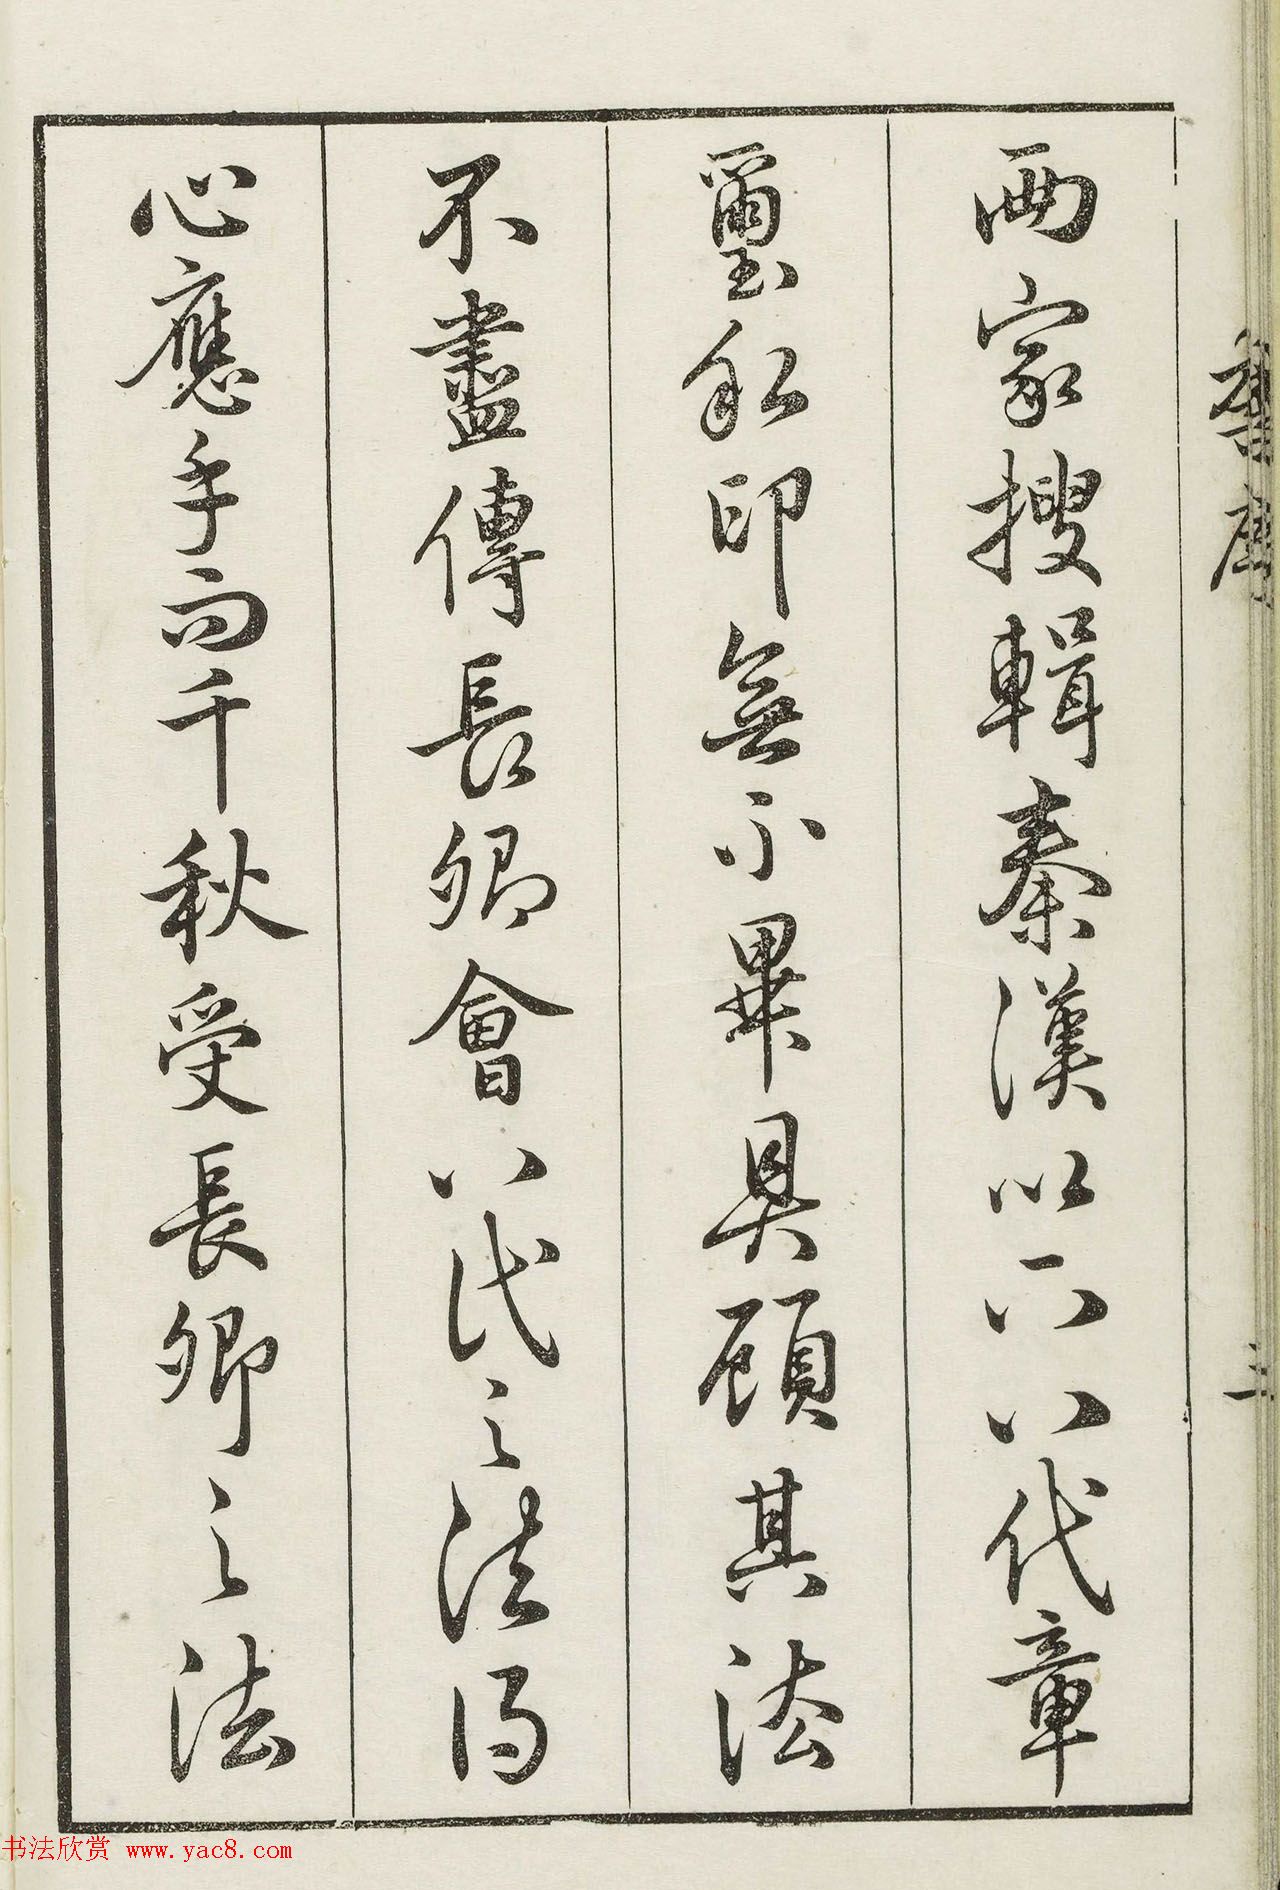 兩家搜輯秦漢以下八代章
璽私印無不畢具顧其法
不盡傳長卿會八代之法得
心應手而千秋受長卿之法
舊序
三
书法欣赏 www.yac8.com